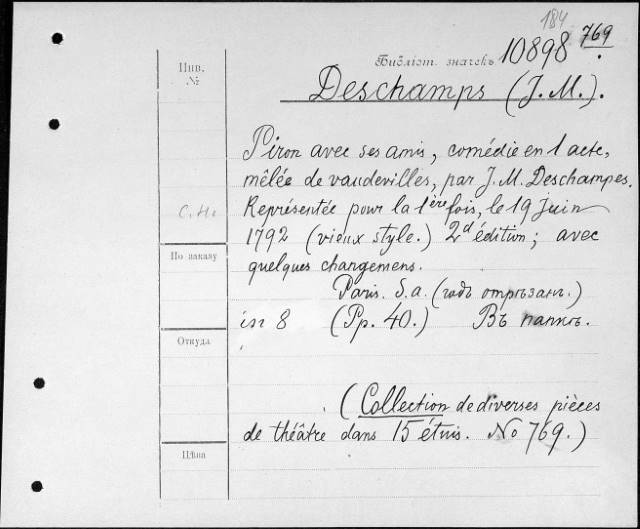 184
Библіот. значекъ 10898 769.
Инв. №
Deschamps (J. M.).
Piron avec ses amis, comédie en 1 acte,
mêlée de vaudevilles, par J. M. Deschampes.
С. Н.
Représentée pour la 1ère fois, le 19 juin
1792 (vieux style.) 2d édition; avec
По заказу
quelques changemens.
Paris. S. a. (годъ отрѣзанъ.)
in 8 (Pp. 40.) Въ папкѣ.
Откуда
(Collection de diverses pièces
de théâtre dans 15 étuis. No 769.)
Цѣна